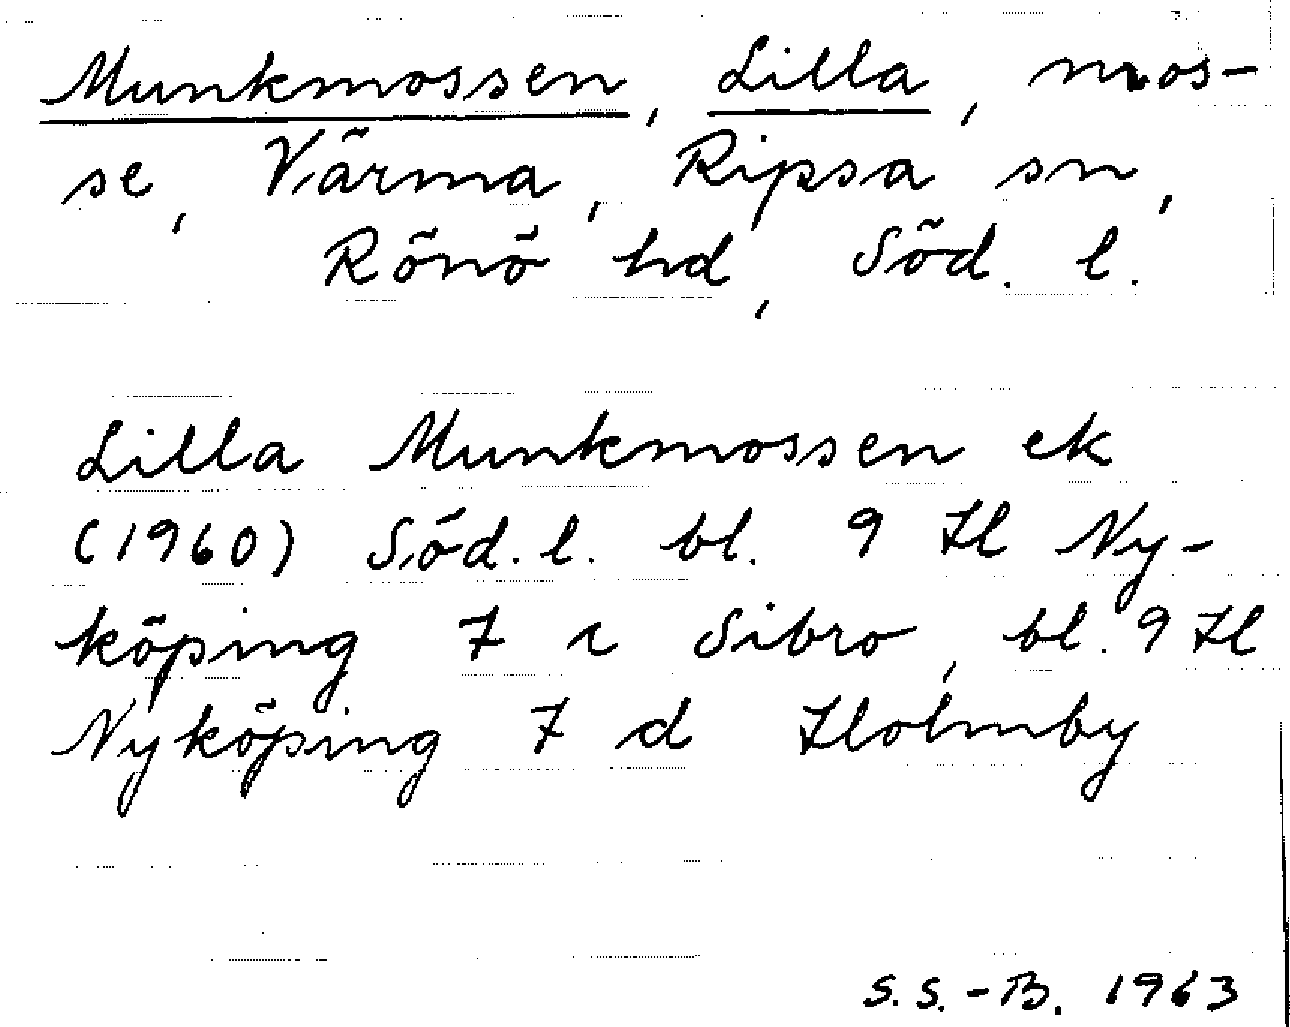 Munkmossen, Lilla, mos-
se, Värma, Ripsa sn,
Rönö hd, Söd. l.
Lilla Munkmossen ek
(1960) Söd. l. bl. 9 H Ny-
köping 7 c Sibro, bl. 9 H
Nyköping 7 d Holmby
S. S.-B. 1963